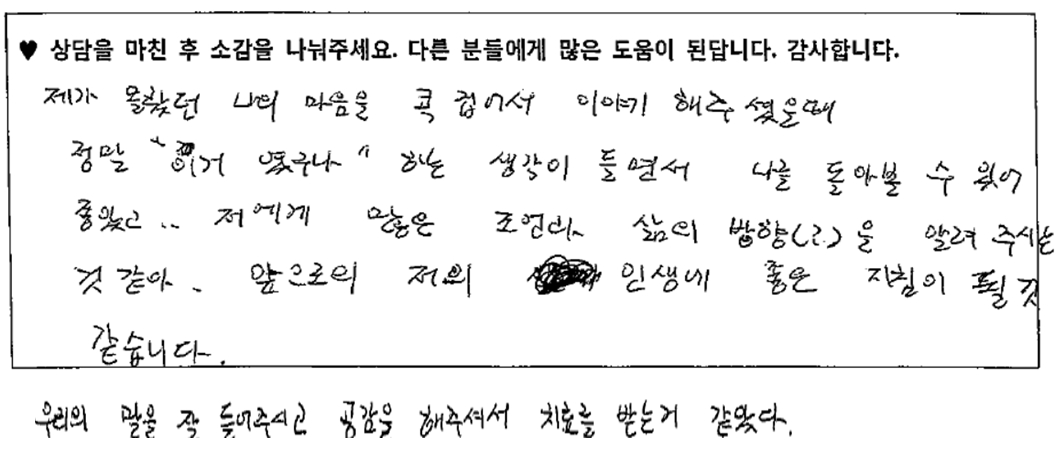 ♥ 상담을 마친 후 소감을 나눠주세요. 다른 분들에게 많은 도움이 된답니다. 감사합니다.
제가 몰랐던 나의 마음을 콕 집어서 이야기 해주셨을때
정말 "이거 였구나" 하는 생각이 들면서 나를 돌아볼 수 있어
좋았고.. 저에게 많은 조언과 삶의 방향(?)을 알려 주시는
것 같아. 앞으로의 저의 인생에 좋은 지침이 될 것
같습니다.
우리의 말을 잘 들어주시고 공감을 해주셔서 치료를 받는거 같았다.